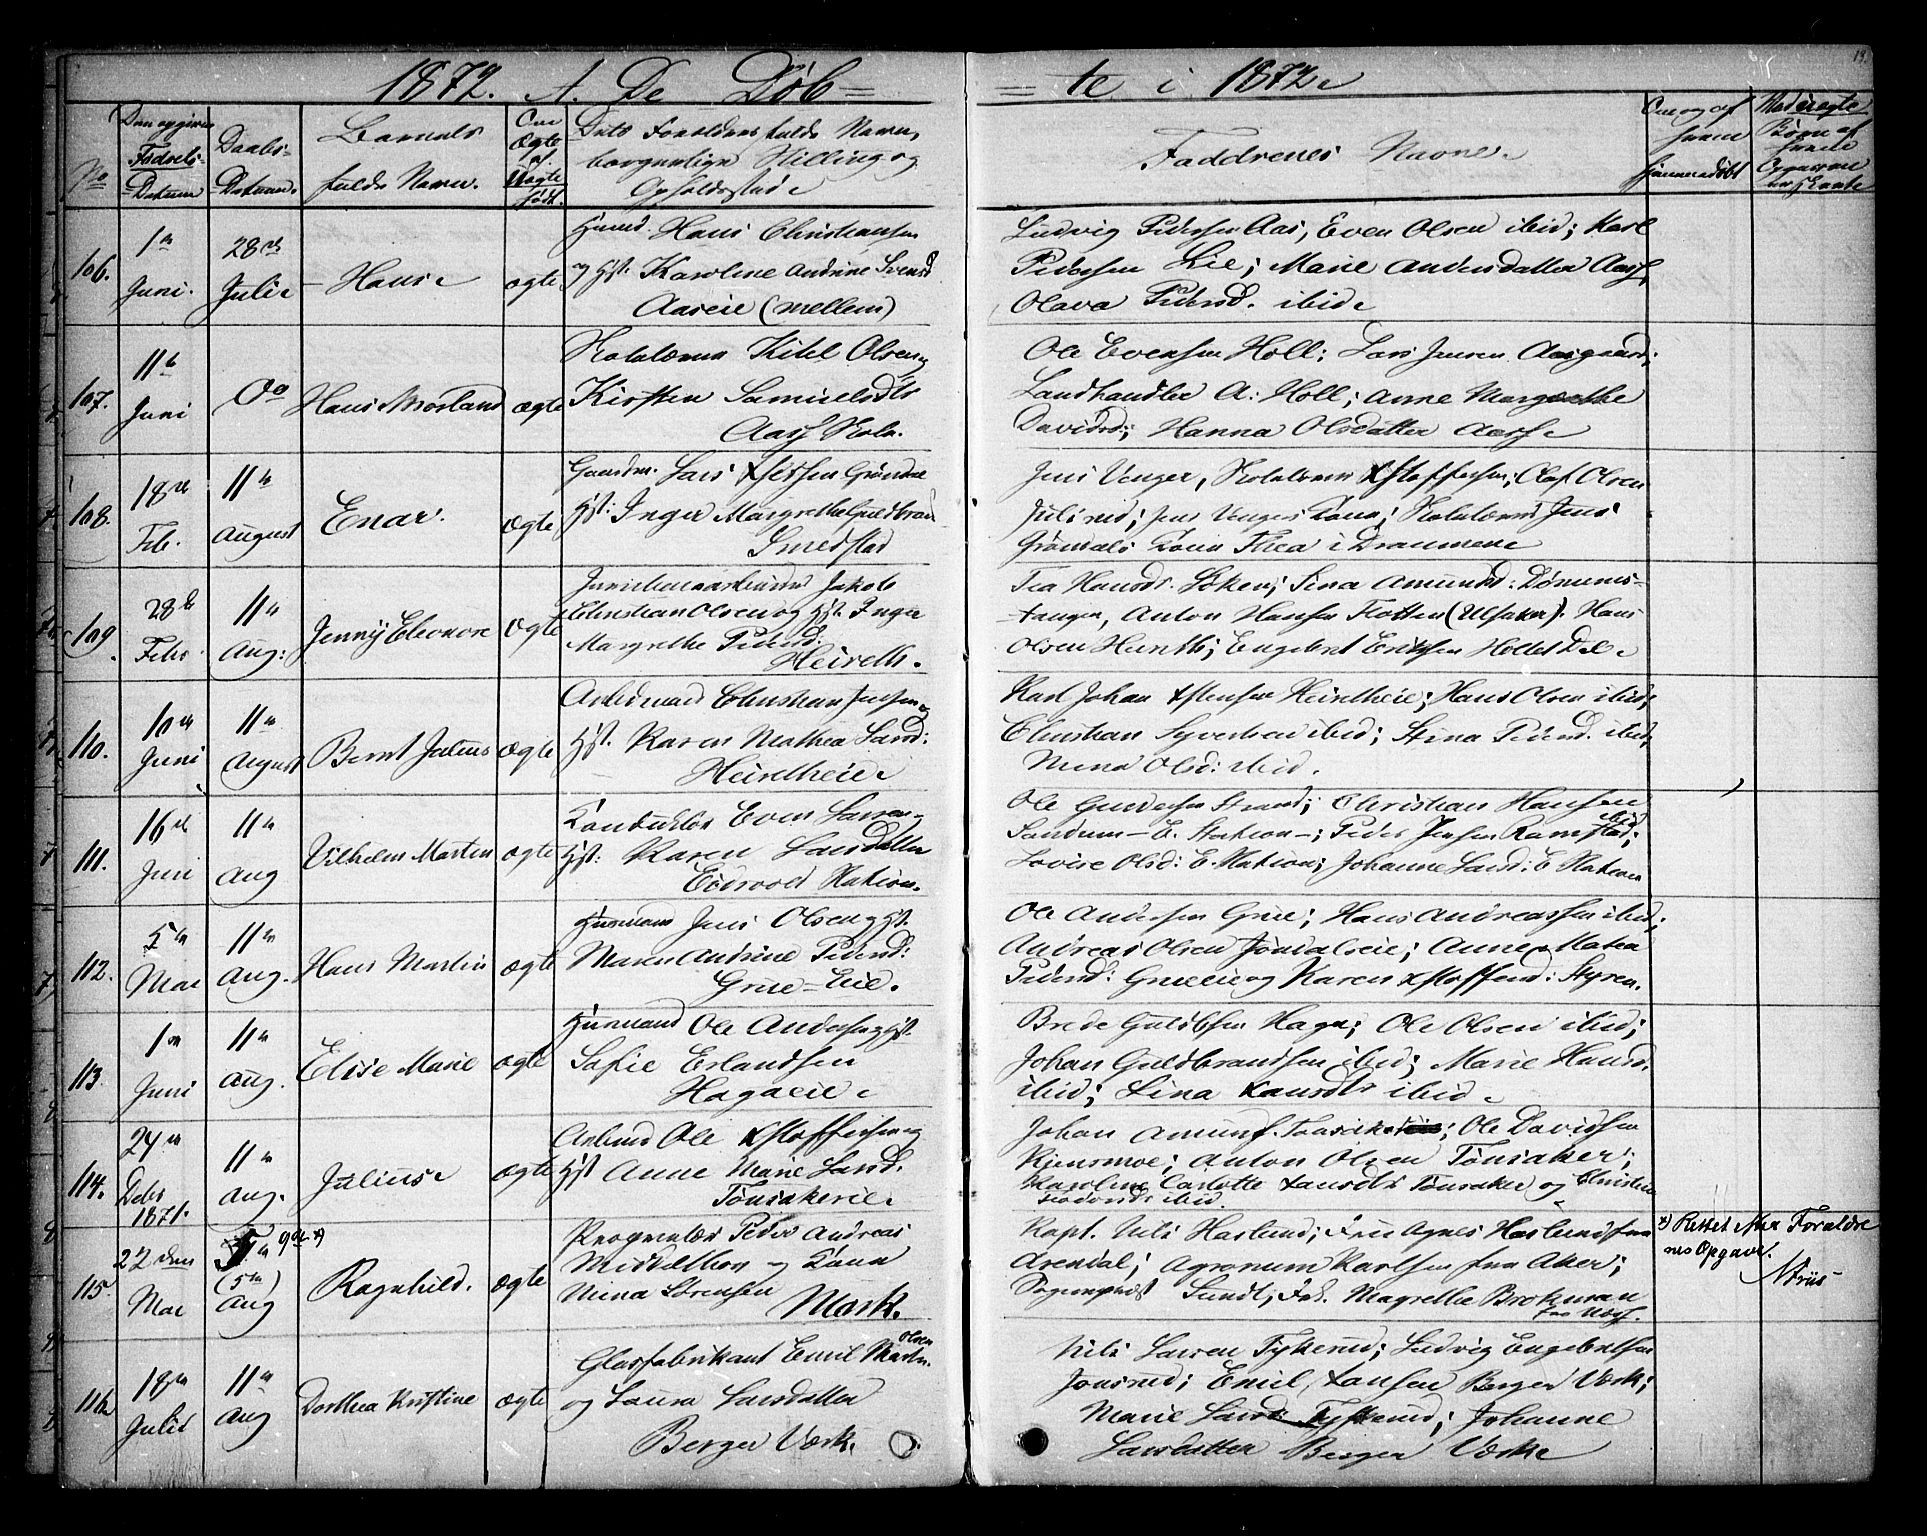 19.
1872. A. De Døb= = te i 1872
No
Den opgivne Fødsels-Datum
Daabs-Datum.
Barnets fulde Navn.
Om Ægte el. Uægte født.
Dets Forældres fulde Navn, borgerlige Stilling og Opholdssted
Faddrenes Navne.
Om og af hvem hjemmedøbt
106.
1ste Juni.
28de Juli
Hans
ægte
Husmd. Hans Christiansen
og Hst. Karoline Andrine Svensd
Aaseie (mellem)
Ludvig Pedersen Aas, Even Olsen ibid; Karl
Pedersen Lie; Marie Andersdatter Aas;
Olava Pedersd. ibid
107.
11te Juni
Do
Hans Morland
ægte
Skolelærer Kitel Olsen og
Kirsten Samuelsdtr
Aass Skole.
Ole Evensen Holl; Lars Jensen Aasgaard;
Landhandler A. Holl; Anne Margrethe
Davidsd; Hanna Olsdatter Aass
108.
18de Feb.
11te August
Enar.
ægte
Gaardm. Lars
Hst: Inger Margrethe Guldbran
Smedstad
Jens Venger, Skolelærer Kstoffersen; Olaf Olsen
Julsrud; Jens Vengers Kone; Skolelærer Jens
Grøndals Kone Thea i Drammen
109.
28de Febr.
11te Aug:
Jenny Eleonore
ægte
Jernbanearbeider Jakob
Christian Olsen og Hst. Inger
Margrethe Pedersd:
Tea Hansdr. Løken; Lina Amunds: Dønnes-
-tangen, Anton Hansen Flotten (Ulsaker). Hans
Olsen Engebret Eriksen
110.
10de Juni
11te August
Bernt Julius
ægte
Arbeidmand Christian Jensen og
Hst. Karen Mathea Larsd:
Karl Johan Hans Olsen ibid;
Christian Syversen ibid; Stina Pedersd. ibid;
Mina Olsd: ibid.
111.
16de Juni
11te Aug
Vilhelm Martin
ægte
Konduktør Even Larsen
Hst: Karen Larsdatter
Eidsvold Station.
Ole Gundersen Strand; Christian Hansen
Sandum - E. Station -; Peder Jensen Ramstad; ibid
Lovise Olsd: E. Station; Johanne Larsd: E Station
112.
5te Mai
11te Aug.
Hans Martin
ægte
Husmand Jens Olsen og Hst.
Maren Andrine Pedersd:
Grue-Eie.
Ole Andersen Grue; Hans Andreassen ibid;
Andreas Olsen Jøndalseie; Anne Matea
Pedersd: Grueeie og Karen Kstoffersd: Styren.
113.
1ste Juni
11te Aug.
Elise Marie
ægte
Husmand Ole Andersen og Hst.
Safie Erlandsen
Hagaeie
Brede Guldbsen Haga; Ole Olsen ibid;
Johan Guldbrandsen ibid; Marie Hansd.
ibid; Lina Hansdtr ibid
114.
24de Debr 1871.
11te Aug.
Julius
ægte
Arbmd Ole Kstoffersen og
Hst Anne Marie Larsd.
Tønsakereie
Johan Amunds. Tønsaker; Ole Davidsen
Kjensmoe; Anton Olsen Tønsaker;
Karoline Carlotte Hansdtr Tønsaker og Christine
ibid
115.
22 den Mai
9de x) (5te) Aug
Ragnhild.
ægte
Peder Andreas
Mickelborg og Kone
Mina Sørensen
Mork.
Kapt. Nils Haslund; Frue Agnes Haslund fra
Arendal; Agronom Karlsen fra Aker;
Sundt; Frk. Magrethe Brokman
fra Næs.
x) Rettet efter Forældre
nes Opgave.
Friis
116.
18de Juli
11te Aug
Dorthea Kristine
ægte
Glasfabrikant Emil Martin Olsen
og Laura Larsdatter
Berger Værk.
Nils Larsen Tykerud; Ludvig Engebretsen
Jonsrud; Emil Hansen Berger Værk;
Marie Larsd: Tykerud; Johanne
Larsdatter Berger Værk